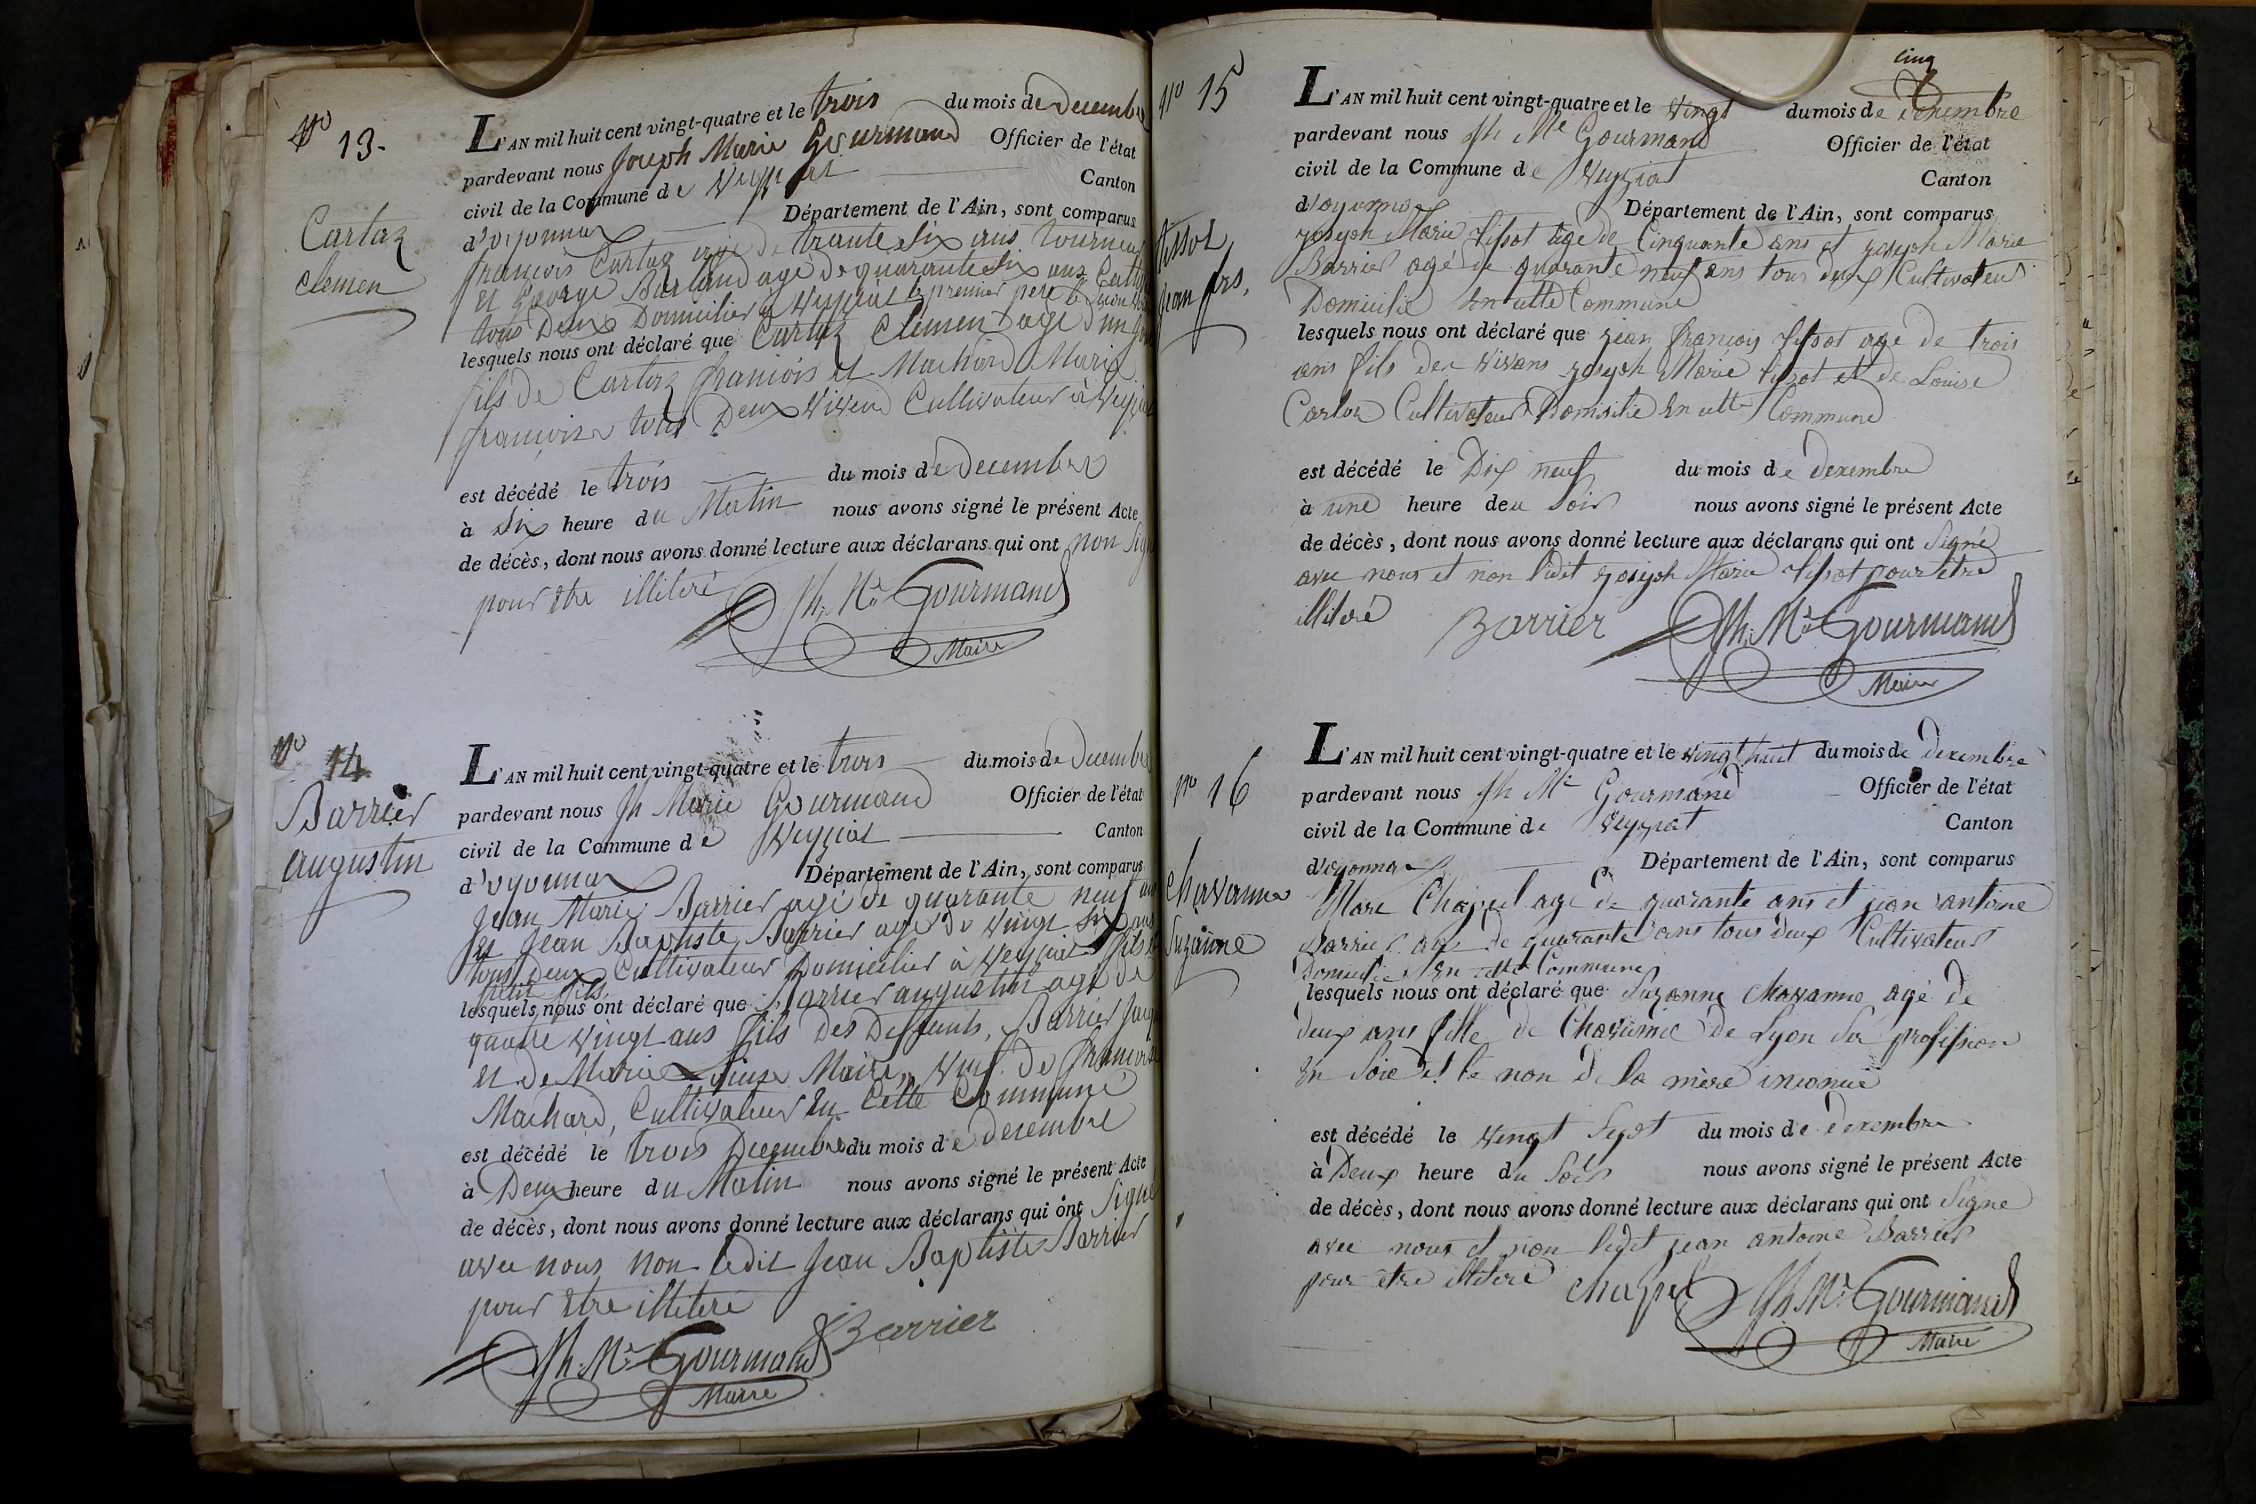 No 13.
Cartaz
Clemen
L'AN mil huit cent vingt-quatre et le trois du mois de decembre
pardevant nous Joseph Marie Gourmand Officier de l'état
civil de la Commune de Veyziat Canton
d'oyonnax Département de l'Ain, sont comparus
françois Cartaz agé de trante six ans tourneur
et George Barland agé de quarante six ans
tous Deux Domicilier a Veyziat le premier pere le
lesquels nous ont déclaré que Cartaz Clemen agé d'un
fils de Cartaz françois et Machard Marie
françoise tous Deux vivend Cultivateur à Veyziat
est décédé le trois du mois de decembre
à Six heure du Matin nous avons signé le présent Acte
de décès, dont nous avons donné lecture aux déclarans qui ont non signé
pour Etre illiteré Jh. Me Gourmand
Maire
No 14
Barrier
augustin
L'AN mil huit cent vingt-quatre et le trois du mois de decembre
pardevant nous Jh Marie Gourmand Officier de l'état
civil de la Commune de Veyziat Canton
d'oyonnax Département de l'Ain, sont comparus
Jean Marie Barrier agé de quarante neuf ans
et Jean Baptiste Barrier agé de vingt six ans
tous deux Cultivateur Domicilier à Veyziat fils et
petit fils
lesquels nous ont déclaré que Barrier augustin agé de
quatre vingt ans fils des Deffunts, Barrier
et de Marie Maire, veuf de françoise
Machard, Cultivateur En Cette Commune
est décédé le trois Decembre du mois de decembre
à Deux heure du Matin nous avons signé le présent Acte
de décès, dont nous avons donné lecture aux déclarans qui ont Signé
avec nous non ledit Jean Baptiste Barrier
pour Etre illiteré
Barrier
Jh. Me Gourmand
Maire
cinq
No 15
Tissot
Jean frs.
L'AN mil huit cent vingt-quatre et le vingt du mois de dexembre
pardevant nous Jh Me Gourmand Officier de l'état
civil de la Commune de Veyziat Canton
d'oyonnax Département de l'Ain, sont comparus
joseph Marie tissot agé de Cinquante ans et joseph Marie
Barrier agé de quarante neuf ans tous deux Cultivateur
Domicilié En cette Commune
lesquels nous ont déclaré que jean françois tissot agé de trois
ans fils des vivans joseph Marie tissot et de Louise
Carloz Cultivateur Domicilié En cette Commune
est décédé le Dix neuf du mois de dexembre
à une heure deu Soir nous avons signé le présent Acte
de décès, dont nous avons donné lecture aux déclarans qui ont Signé
avec nous et non ledit joseph Marie tissot pour être
illiteré Barrier Jh. Me Gourmand
Maire
No 16
Chavanne
Suzanne
L'AN mil huit cent vingt-quatre et le vingt huit du mois de dexembre
pardevant nous Jh Me Gourmand Officier de l'état
civil de la Commune de Veyziat Canton
d'oyonnax Département de l'Ain, sont comparus
Marc Chappel agé de quarante ans et jean antoine
Barrier agé de quarante ans tous deux Cultivateur
Domicilié En cette Commune
lesquels nous ont déclaré que Suzanne Chavanne agé de
deux ans fille de Chavanne de Lyon Sa profession
En Soie et le non de la mère inconnue
est décédé le vingt Sept du mois de dexembre
à Deux heure du Soir nous avons signé le présent Acte
de décès, dont nous avons donné lecture aux déclarans qui ont Signé
avec nous et non ledit jean antoine Barrier
pour être illiteré Chappel Jh. Me Gourmand
Maire